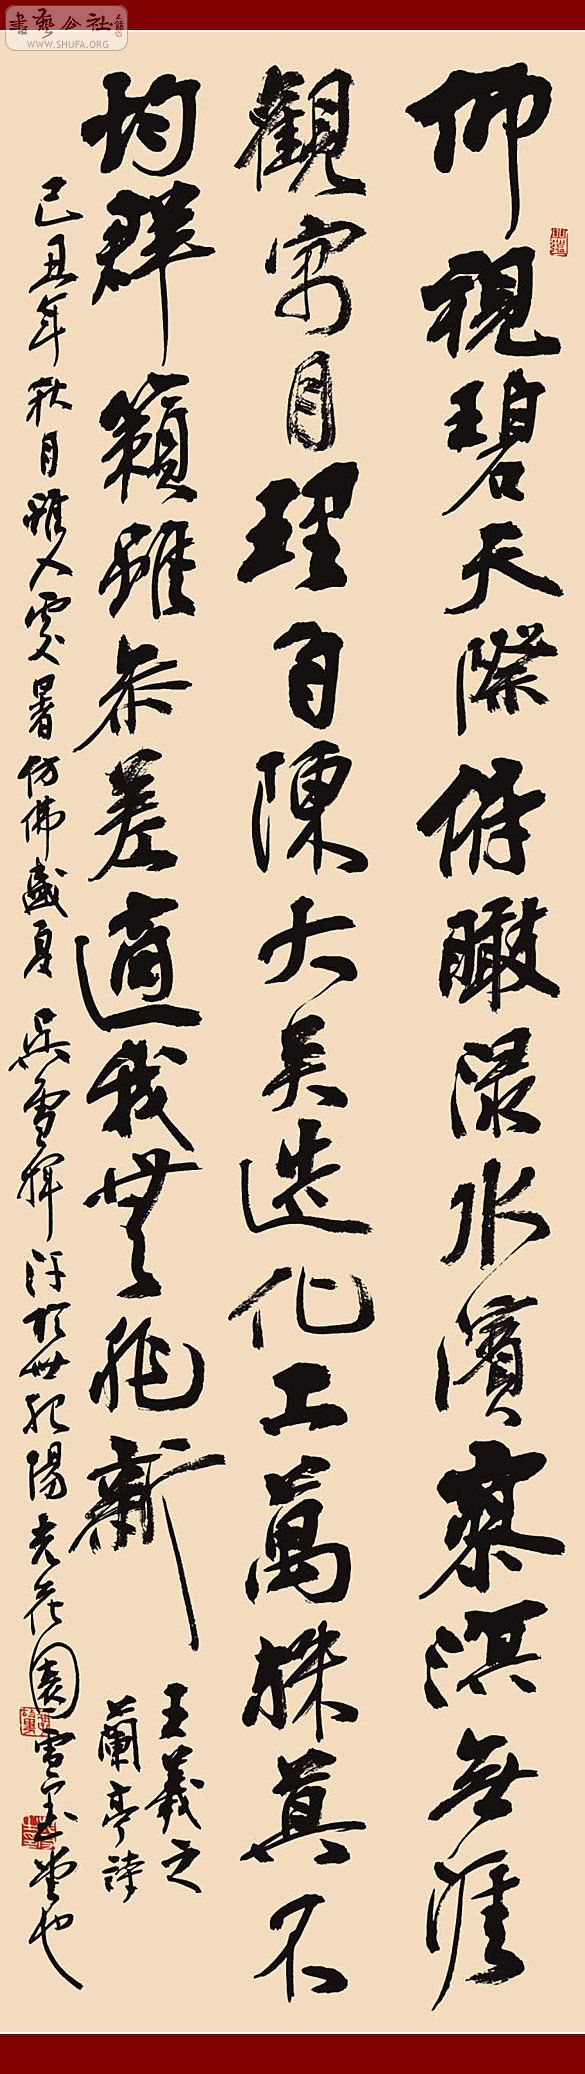 書藝公社
WWW.SHUFA.ORG
仰視碧天際俯瞰淥水濱寥溟無涯
觀寓目理自陳大矣造化工萬殊莫不
均群籟雖參差適我無非新
王羲之
蘭亭詩
己丑年秋月雖入處暑仿佛盛夏吳雪揮汗於世紀陽光花園雪堂也